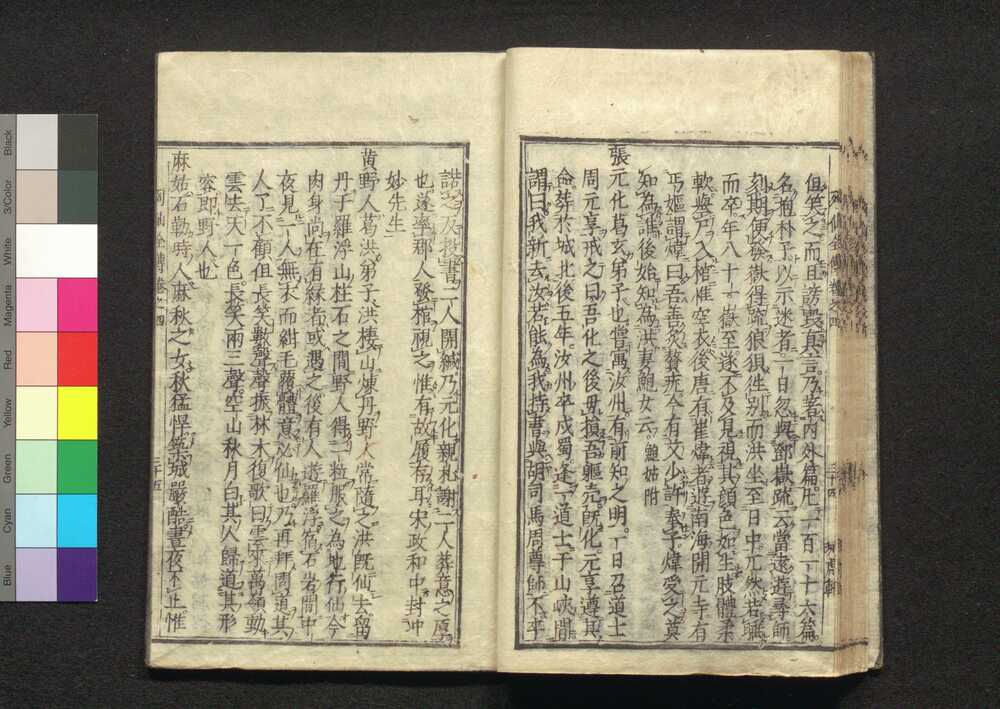 但笑之而且謗毀真言乃著內外篇凡一百一十六篇
名抱朴子以示迷者一日忽與鄧嶽疏云當遠遊尋師
刻期便發嶽得疏狼狽徃別而洪坐至日中兀然若睡
而卒年八十一嶽至遂不及見視其顔色如生肢體柔
軟與尸入棺惟空衣後唐有崔煒者遊南海開元寺有
丐嫗謂煒曰吾善灸贅疣今有艾少許奉子煒受之莫
知為誰後始知為洪妻鮑女云 鮑姑附
張元化葛玄弟子也嘗寓汝州有前知之明一日召道士
周元亨戒之曰吾化之後毋損吾軀壳既化元亨遵其
命葬於城北後五年汝州卒戍蜀逢一道士于山峽間
謂曰我新去汝若能為我持書與胡司馬周尊師不乎
諾之及投書二人開緘乃元化親札謝二人葬意之厚
也遂率郡人發棺視之惟有故履存耳宋政和中封冲
妙先生
黄野人葛洪弟子洪棲山煉丹野人常隨之洪既仙去留
丹于羅浮山柱石之間野人得一粒服之為地行仙今
肉身尚在有緣者或遇之後有人遊羅浮宿石岩間中
夜見一人無衣而紺毛覆體意必仙也乃再拜問道其
人了不顧但長笑數聲聲振林木復歌曰雲來萬嶺動
雲去天一色長笑兩三聲空山秋月白其人歸道其形
容即野人也
麻姑石勒時人麻秋之女秋猛悍築城嚴酷晝夜不止惟
三十四
三十五
Black
3/Color
White
Magenta
Red
Yellow
Green
Cyan
Blue